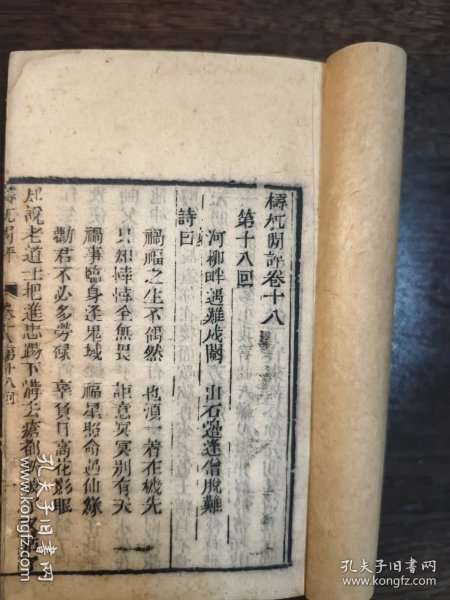 檮杌閒評卷十八
第十八回
河柳畔遇難成閹　山石邊逢僧脫難
詩曰
禍福之生不偶然　也須一着在機先
只知悻悻全無畏　詎意冥冥別有天
禍事臨身逢鬼蜮　福星照命過仙緣
勸君不必多勞碌　享負日高花影眠
却說老道士把進忠踢下溝去瘡都
檮杌閒評　卷十八第十八回　一
孔夫子旧书网
孔夫子旧书网
www.kongfz.com